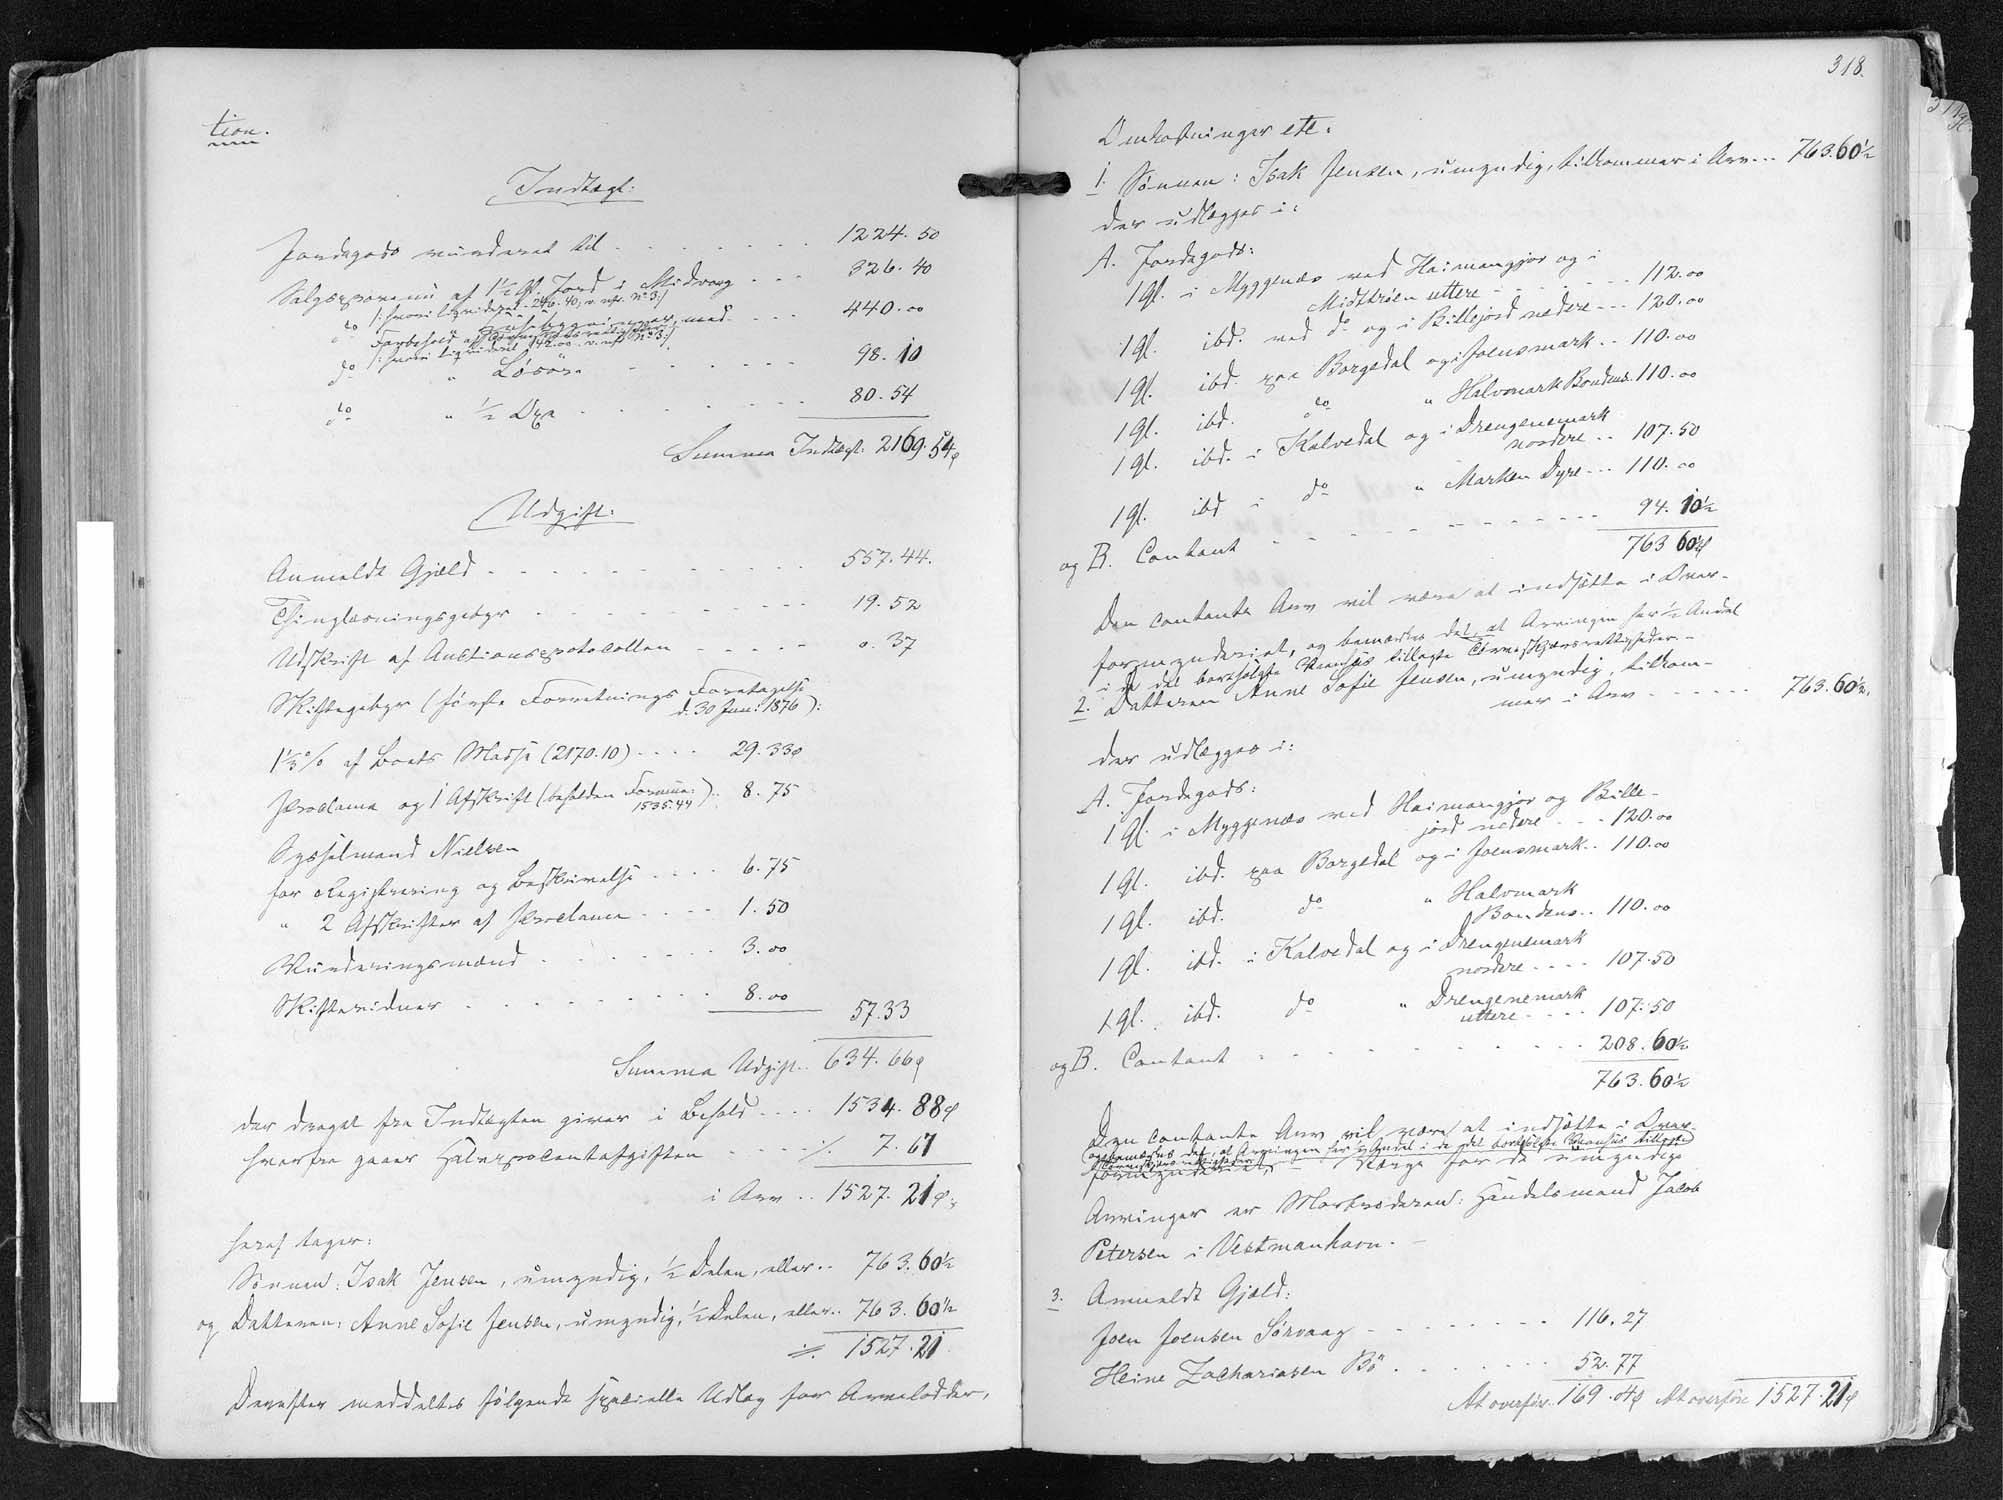 tion.
Indtægt:
Jordegods vurderet til 1224.50
Salgsprovenu af 1½ Gl. Jord i Midvaag 326.40
|: hvori liqvideret 246.40, v. nfr. No 3:|
do Forbehold af med 440.00
|: hvori liqvideret 142.00 v. nfr. No 3:|
do " Løsøre 98.10
do " ½ Oxe 80.54
Summa Indtægt: 2169.54
Udgift:
Anmeldt Gjæld 557.44.
Thinglæsningsgebyr 19.52
Udskrift af Auctionsprotocollen 0.37
Skiftegebyr (første Forretnings Foretagelse
d. 30 Jan: 1876):
1⅓% af Boets Masse (2170.10) 29.33
Proclama og 1 Afskrift (beholden Formue:) 8.75
1535.44
Sysselmand Nielsen
for Registrering og Beskrivelse 6.75
" 2 Afskrifter af Proclama 1.50
Vurderingsmænd 3.00
Skiftevidner 8.00
57.33
Summa Udgift 634.66
der draget fra Indtægten giver i Behold 1534.88
hvorfra gaaer Halvprocentafgiften ./. 7.67
i Arv .. 1527.21
heraf tager:
Sønnen: Isak Jensen, umyndig, ½ Delen, eller .. 763.60½
og Datteren: Anne Sofie Jensen, umyndig, ½ Delen, eller .. 763.60½
./. 1527.21
Derefter meddeltes følgende specielle Udlæg for Arvelodder,
318.
Omkostninger etc:
1. Sønnen: Isak Jensen, umyndig, tilkommer i Arv ... 763.60½
der udlægges i:
A. Jordegods:
1 gl. i Myggenæs ved Haimangjor og i
Midttröen uttere 112.00
1 gl. ibd. ved do og i Billejord nedere 120.00
1 gl. ibd. paa Borgedal og i Joensmark .. 110.00
1 gl. ibd. do " Halvmark Bondens. 110.00
1 gl. ibd. i Kalvedal og i Drengenemark
nordere .. 107.50
1 gl. ibd i do " Marken Dyre 110.00
og B. Contant 94.10½
763 60½
Den contante Arv vil være at indsætte i Over-
formynderiet, og bemærkes det, at Arvingen har ½ Andel
i de det bortsolgte Vaanhus tillagte Tørveskjærsrettigheder.
2. Datteren Anne Sofie Jensen, umyndig, tilkom-
mer i Arv 763.60½.
der udlægges i:
A. Jordegods:
1 gl. i Myggenæs ved Haimangjor og Bille-
jord nedere 120.00
1 gl. ibd. paa Borgedal og i Joensmark .. 110.00
1 gl. ibd. do " Halvmark
Bondens .. 110.00
1 gl. ibd. i Kalvedal og i Drengenemark
nordere 107.50
1 gl. ibd. do " Drengenemark
uttere 107.50
og B. Contant 208.60½
763.60½
Den contante Arv vil være at indsætte i Over-
(og bemærkes det, at Arvingen har ½ Andel i de det bortsolgte Vaanhus tillagte
Tørveskjærsrettigheder)
formynderiet. Værge for de umyndige
Arvinger er Morbroderen: Handelsmand Jacob
Petersen i Vestmanhavn.
3. Anmeldt Gjæld:
Joen Joensen Sörvaag 116.27
Heine Zachariasen Bö 52.77
At overföre 169.04 At overföre 1527.21